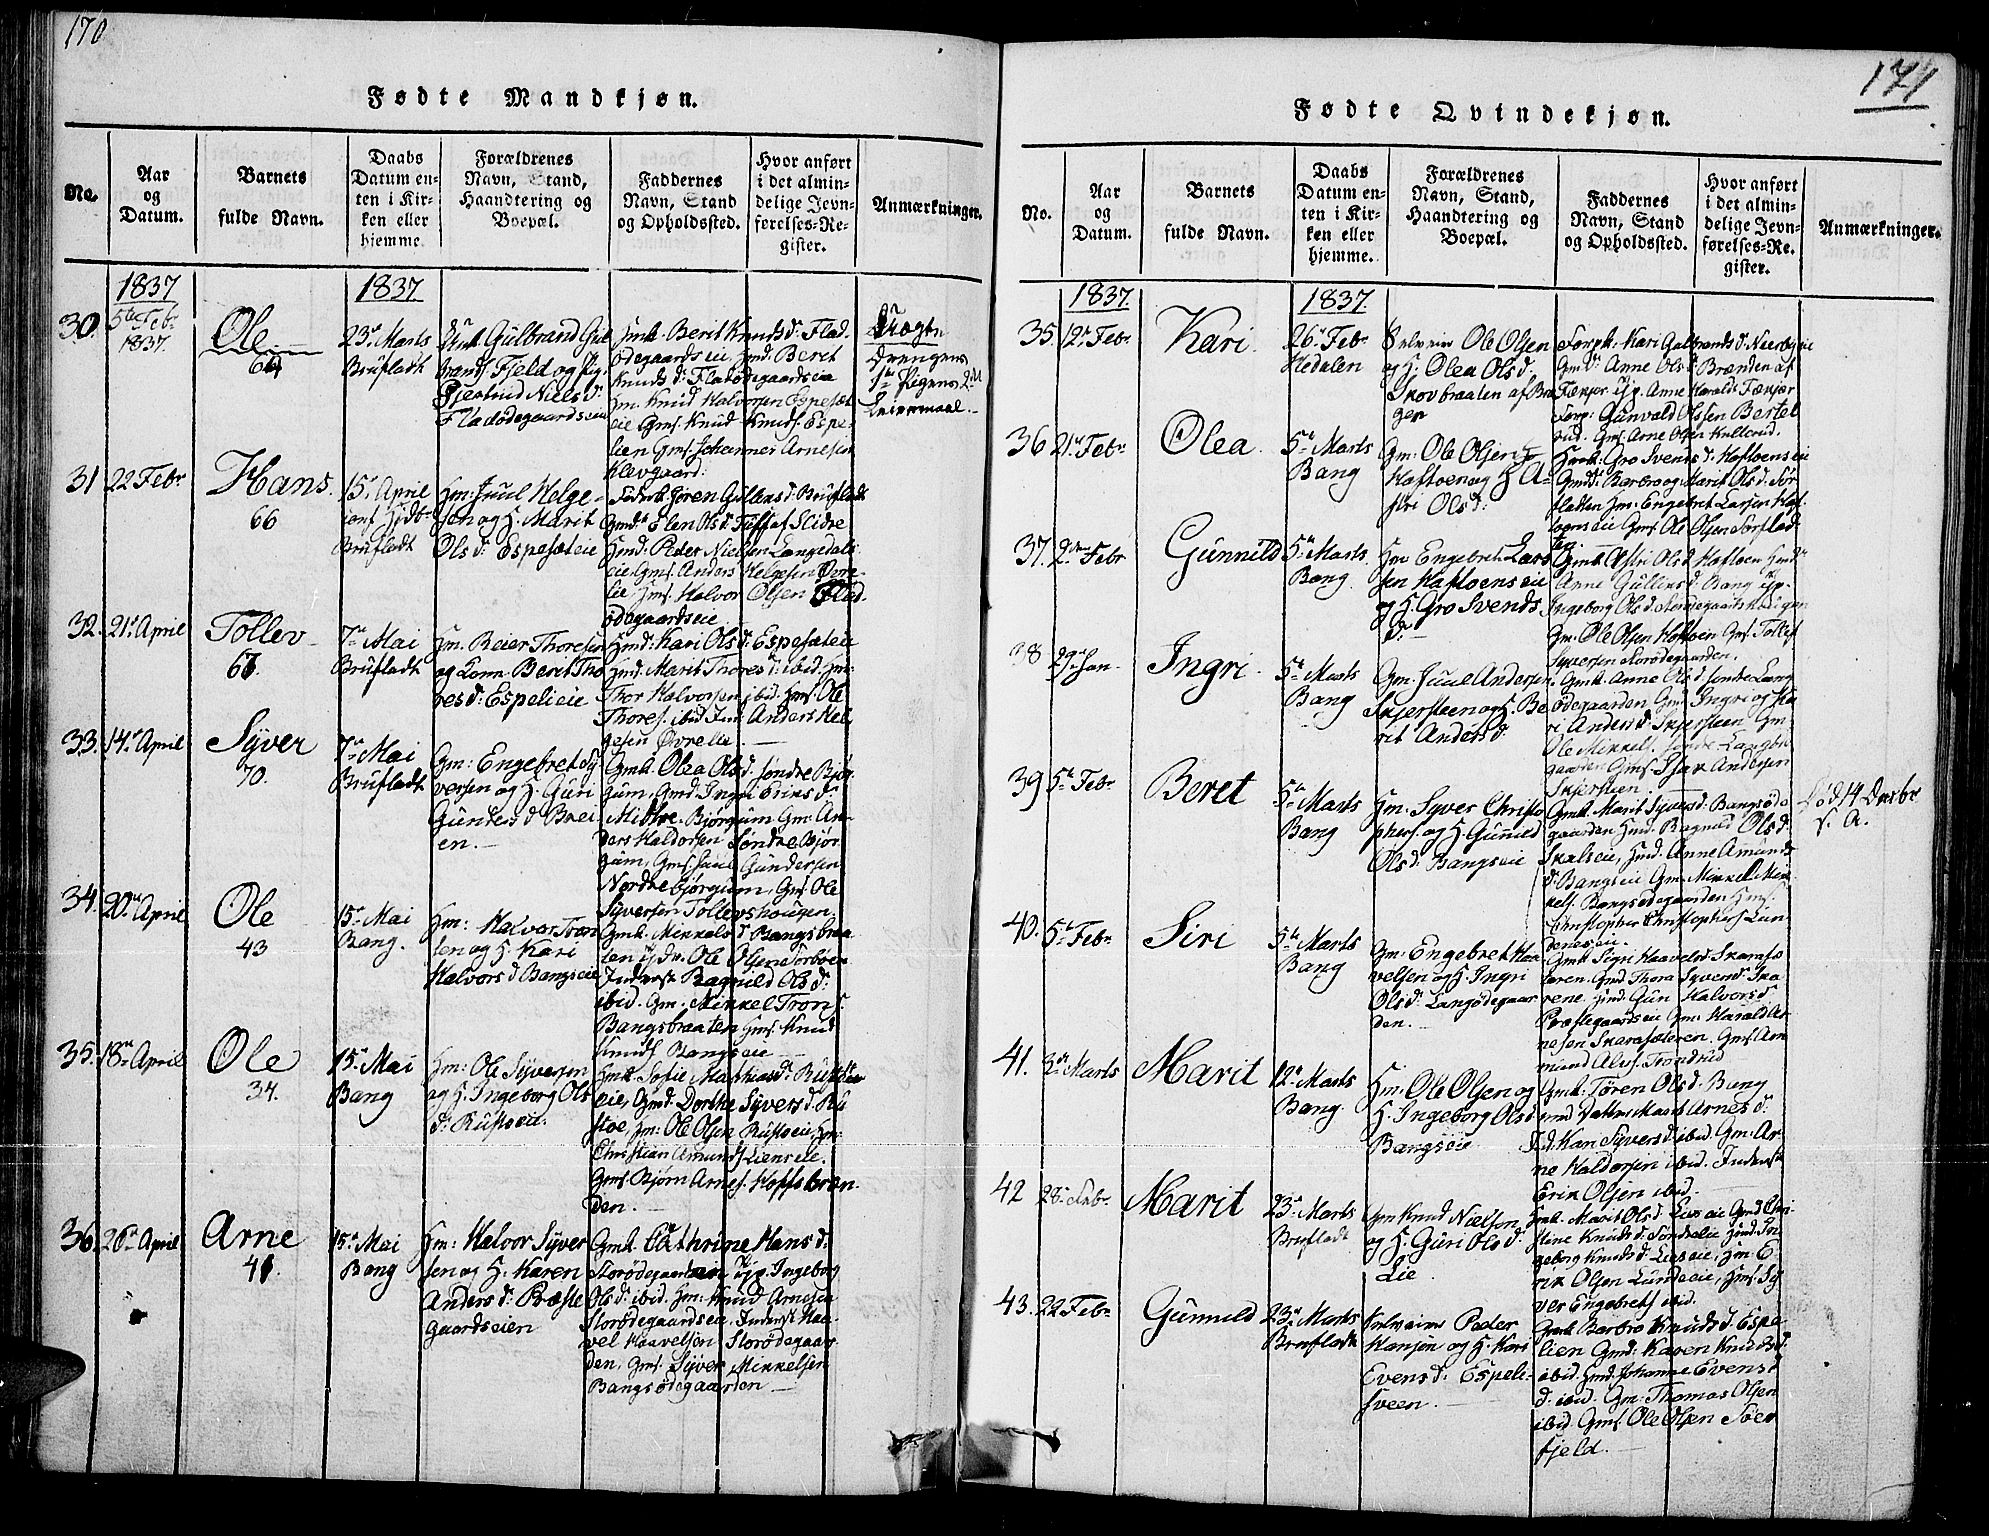 170
Fødte Mandkjøn.
No.
Aar
og
Datum.
Barnets
fulde Navn.
Daabs
Datum en-
ten i Kir-
ken eller
hjemme.
Forældrenes
Navn, Stand,
Haandtering og
Boepæl.
Faddernes
Navn, Stand
og Opholdssted.
Hvor anført
i det almin-
delige Jevn-
førelses-Re-
gister.
Anmærkninger.
1837
1837
30. 5te Febr
1837.
Ole
23de Marts
Brufladt
Gulbrand Gul
brands. Fjeld og Pig.
Niels d:
Fladødegaardseie
Berit Knuds d: Flad
ødegaardseie, Gmd: Beret
Knuds d: Fladødegaardseie
Gm. Knud Halvorsen Espesæt
eie Gms. Knud Knuds. Espe-
lien Gms. Johannes Arnesen
Klevgaard.
Drengens
1te Pigens 2det
Leiermaal.
31 22 Febr
Hans.
66
15de April
Brufladt
Hm: Juul Helge-
sen og H. Marit
Ols d: Espesæteie
Gullens d: Brufladt
Gmd: Elen Ols d: Tuff af Slidre
Hmd: Peder Nielsen Langedals
eie, Gms. Anders Helgesen Øvre
lie, Hms. Halvor Olsen Flad-
ødegaardseie
32. 21de April
Tollev
67.
7de Mai
Brufladt
Hm. Beier Thoresen
og Kone Beret Tho
res d: Espelieie
Hmd: Kari Ols d: Espesæteie
Hmd: Marit Thores d: ibid. Hm:
Thor Halvorsen ibid. Hms. Ole
Thores. ibid. Anders Hel
gesen Øvrelie
33. 14de April
Syver
70.
7de Mai
Brufladt
Gm: Engebret Sy
versen og H. Guri
Gunders d Brei
en.
Gmk. Olea Ols d. søndre Bjør
gum, Gmd. Ingri Eriks d:
Midtre Bjørgum Gm. An-
ders Haldorsen Søndre Bjør
gum, Gms. Juul Gundersen
Nordre Bjørgum, Gms. Ole
Syversen Tollevshougen
34. 20de April
Ole
43
15de Mai
Bang.
Hm: Halvor Tron
sen og H. Kari
Halvors d Bangseie
Gmk. Mikkels d Bangsbraa
ten Ole Olsen Sørbøen
Inderst Ragnild Ols d:
ibid. Gm. Mikkel Trons.
Bangsbraaten Hms. Knud
Knuds. Bangseie
35. 18de April
Ole
34.
15de Mai
Bang
Hm: Ole Syversen
og H. Ingeborg Ols
d: Rustseie.
Hmk Sofie Mathias d: Rust
eie, Gmd. Dorthe Syvers d Ru
stoe, Hm: Ole Olsen Rustseie, Hm.
Christian Amunds. Lienseie.
Gms. Bjørn Arnes. Hoffsbræn
den.
36. 26de April
Arne
41.
15de Mai
Bang
Hm: Halvor Syver
sen og H. Karen
Anders d: Præste
gaardseien
Gmk. Cathrine Hans d:
Storødegaardseie Pige. Ingeborg
Ols d: ibid. Hm: Knud Arnesen
Storødegaardseie, Inderst Haa
vel Haavelsen Storødegaar
den, Gms. Syver Mikkelsen
Bangsødegaarden
171
Fødte Qvindekjøn.
No.
Aar
og
Datum.
Barnets
fulde Navn.
Daabs
Datum en-
ten i Kir-
ken eller
hjemme.
Forældrenes
Navn, Stand,
Haandtering og
Boepæl.
Faddernes
Navn, Stand
og Opholdssted.
Hvor anført
i det almin-
delige Jevn-
førelses-Re-
gister.
Anmærkninger.
1837.
1837.
35. 12te Febr
Kari.
26de Febr
Hedalen
Selveier Ole Olsen
og H. Olea Ols d:
Skovbraaten af Ba
ger
Kari Gulbrands d:
Gmd: Anne Ols d Brænden af
Anne Harald:
Gunvald Olssen Bertel
rud. Gms. Arne Olsen Kulterud.
36 21de Febr
Olea.
5te Marts
Bang
Gm: Ole Olsen
Haftoen og H. A-
stri Ols d:
Gro Svends d: Haftoenseie
Gmd: Barbro og Marit Ols d: Sør
fladten Hm: Engebret Larsen Haf
toenseie Gms Ole Olsen Sørflad
ten.
37. 2den Febr
Gunnild
5te Marts
Bang.
Hm Engebret Lars
sen Haftoenseie
og H. Gro Svends
d:
Gmk. Astri Ols d Haftoen
Anne Gullens d: Bang
Ingeborg Ols d
Gm: Ole Olsen Haftoen Gms. Tollef
Syversen Storødegaarden.
38 29de Jan
Ingri
5te Marts
Bang
Gm. Juul Andersen
Skjersteen og H. Be
rit Anders d.
Gmk: Anne Ols d søndre Lang
ødegaarden Gmd Ingri og Ka
ri Anders d: Skjersteen Gm
Ole Mikkels. søndre Langøde
gaarden Gms Isak Andersen
Skjersteen
39 5te Febr
Beret
5te Marts
Bang
Hm: Syver Christo
phers. og H. Gunnild
Ols d. Bangseie
Gmk. Marit Syvers d: Bangsøde
gaarden Hmd. Ragnild Ols d:
Skalseie, Hmd. Anne Amunds
d: Bangseie Gm. Mikkel Mik
kels. Bangsødegaarden Hms.
Christopher Christophers. Lun
denseie.
Død 14 Decbr
s. A.
40. 5te Febr
Siri
5te Marts
Bang
Gm: Engebret Haa
velsen og H. Ingri
Ols d: Langødegaar
den.
Gmk. Sigri Haavels d: Skarasæ
teren. Gmd Thora Syvers d: Ska
rene. Hmd: Gun Halvors d
Præstegaardseie Gm: Harald Ar
nesen Skarasæteren. Gms. Am
mund Alvs. Trondrud
41. 3de Marts
Marit
12te Marts
Bang.
Hm. Ole Olsen og
H. Ingeborg Ols d
Bangseie
Gmk: Tøren Ols d: Bang
Gmd Marit Arnes d:
Kari Syvers d: ibid. Gm: Ar-
ne Haldorsen ibid. Inderst
Erik Olsen ibid.
42 28de Febr
Marit
23de Marts
Brufladt
Gm Knud Nielsen
og H. Guri Ols d:
Lie
Hmk. Marit Ols d: Lieseie Gmd Chri
stine Knuds d: Søndrelie Hmd: In
geborg Knuds d: Lieseie, Hm: E-
rik Olsen Lundeeie, Hms. Sy
ver Engebrets ibid.
43. 22 Febr
Gunnild
23de Marts
Brufladt
Selveier Peder
Hansen og H. Kari
Evens d: Espeli-
sveen.
Gmk Barbro Knuds d. Espe
lien Gmd: Karen Knuds d:
ibid. Hmd. Johanne Evens d
d: ibid. Gm: Thomas Olsen
ibid. Gms. Ole Olsen Søer
fjeld.